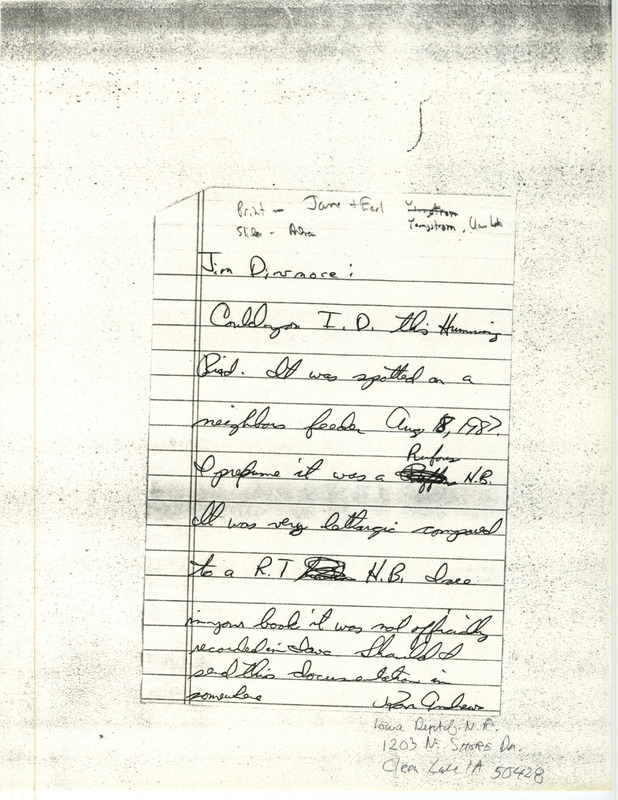 Print - Jane + Earl Youngstrom
Slides - Andrea Youngstrom, Clear Lake
Jim Dinsmore:
Could you I.D. this Humming
Bird. It was spotted on a
neighbors feeder Aug 18, 1987.
Rufous
I presume it was a H.B.
It was very lethargic compared
to a R.T H.B. I see
in your book it was not officially
recorded in Iowa Should I
send this documentation in
somewhere Ron Andrews
Iowa Dept of N.R.
1203 N. SHORE Dr.
Clear Lake IA 50428